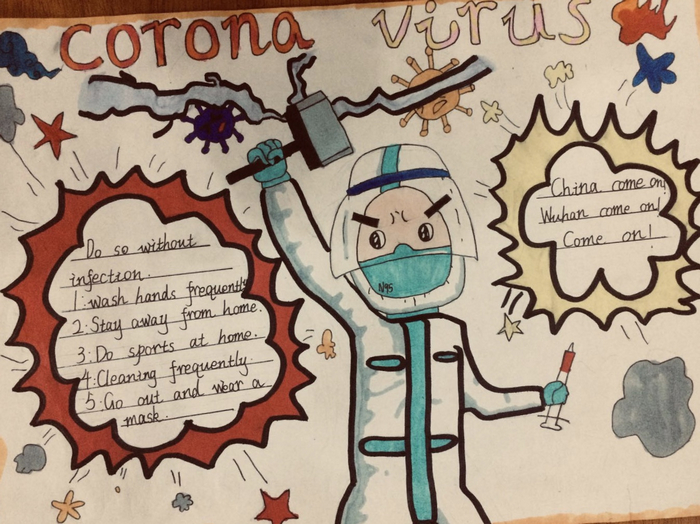 corona virus
Do so without
infection.
1: wash hands frequently
2: Stay away from home.
3: Do sports at home.
4: Cleaning frequently.
5: Go out and wear a
mask.
N95
China come on!
Wuhan come on!
Come on!